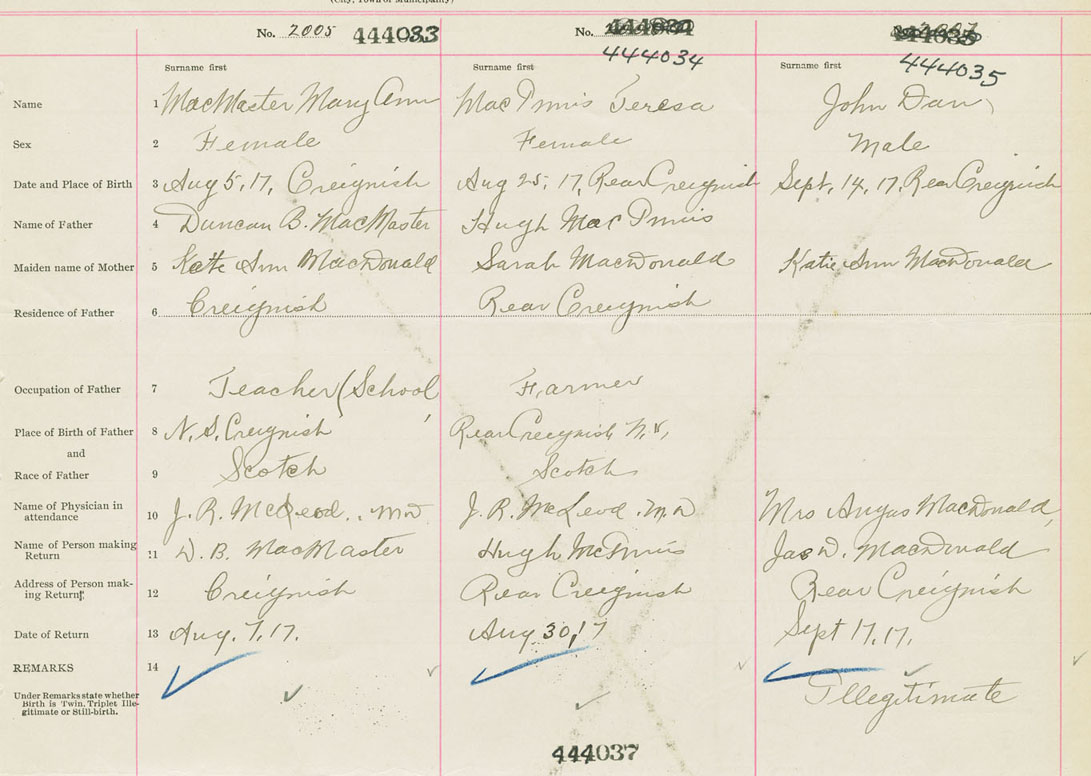 (City, Town or Municipality)
No. 2005 444033
No. 444034
444035
Surname first
Surname first
Surname first
Name 1 MacMaster Mary Ann
MacInnis Teresa
John Dan
Sex 2 Female
Female
Male
Date and Place of Birth 3 Aug 5, 17, Creignish
Aug 25, 17, Rear Creignish
Sept, 14, 17, Rear Creignish
Name of Father 4 Duncan B. MacMaster
Hugh MacInnis
Maiden name of Mother 5 Katie Ann MacDonald
Sarah MacDonald
Katie Ann MacDonald
Residence of Father 6 Creignish
Rear Creignish
Occupation of Father 7 Teacher (School
Farmer
Place of Birth of Father 8 N. S. Creignish
Rear Creignish N.S,
and
Race of Father 9 Scotch
Scotch
Name of Physician in
attendance 10 J. R. McLeod. . MD
J. R. McLeod. M.D
Mrs Angus MacDonald,
Name of Person making
Return 11 D. B. MacMaster
Hugh McInnis
Jas D. MacDonald
Address of Person mak-
ing Return 12 Creignish
Rear Creignish
Rear Creignish
Date of Return 13 Aug. 7, 17.
Aug 30, 17
Sept 17, 17.
REMARKS 14
Under Remarks state whether
Birth is Twin, Triplet Ille-
gitimate or Still-birth.
Illegitimate
444037